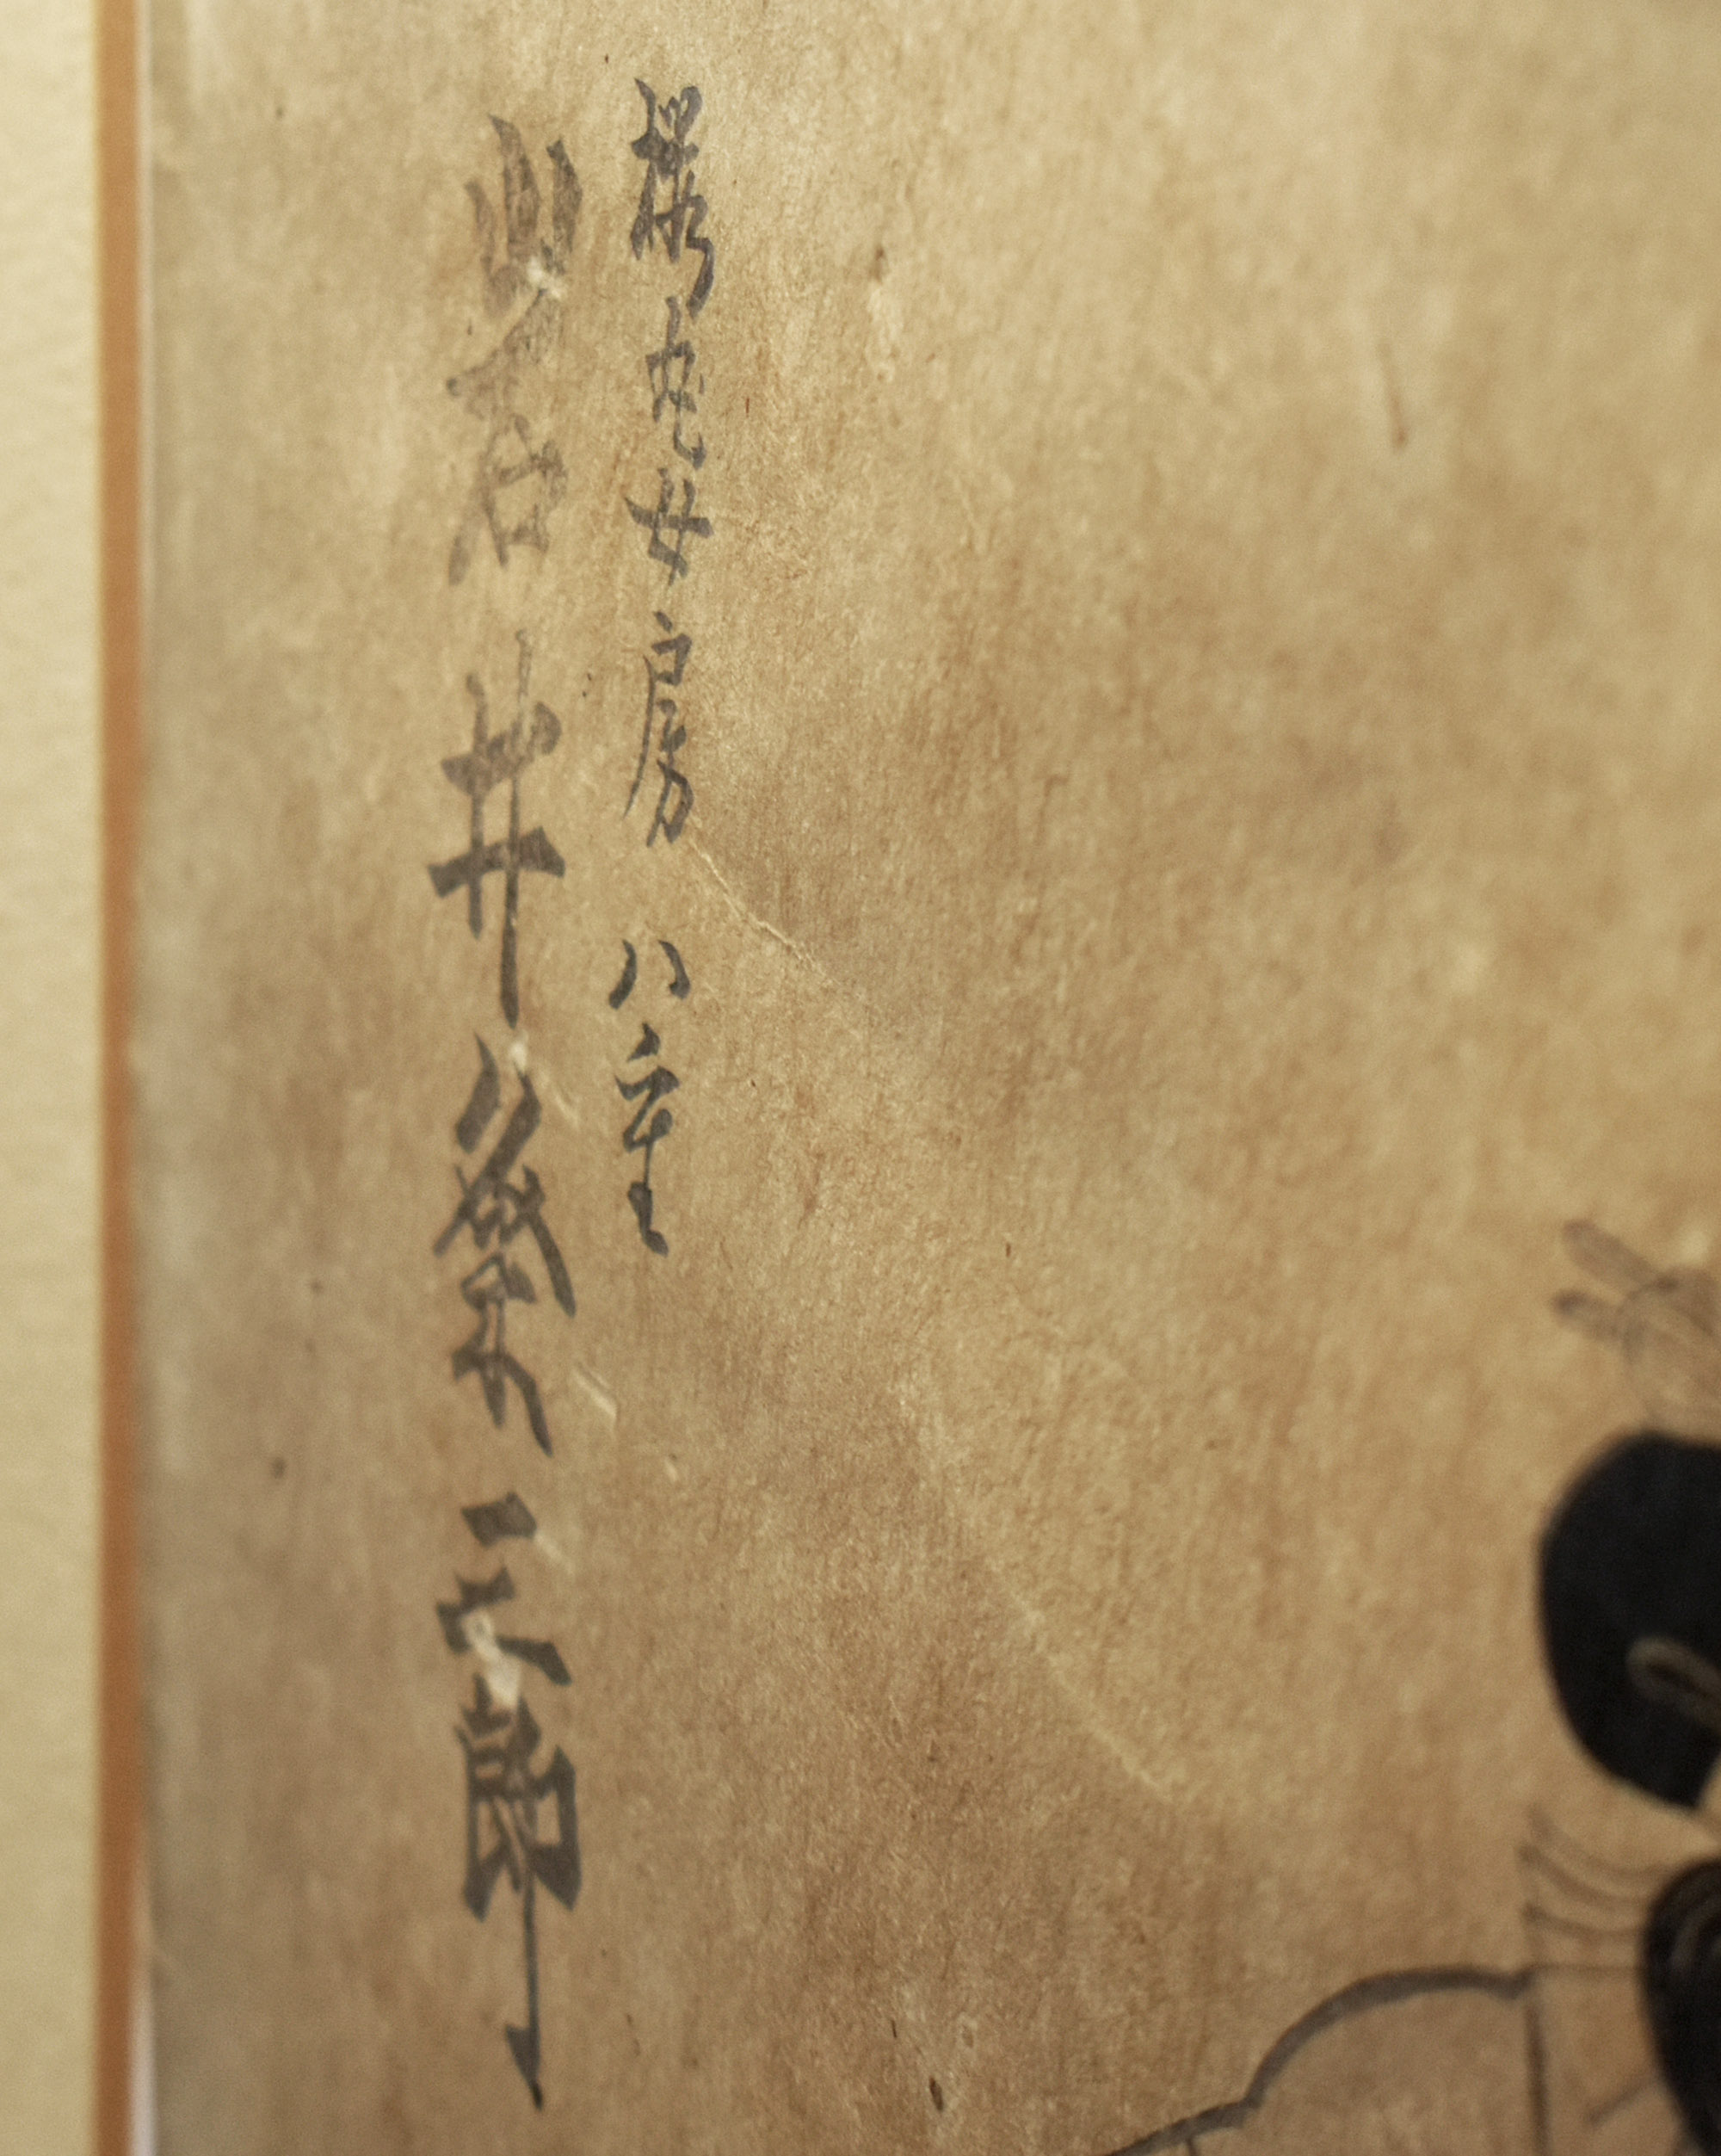 櫻丸女房 八重
岩井粂三郎